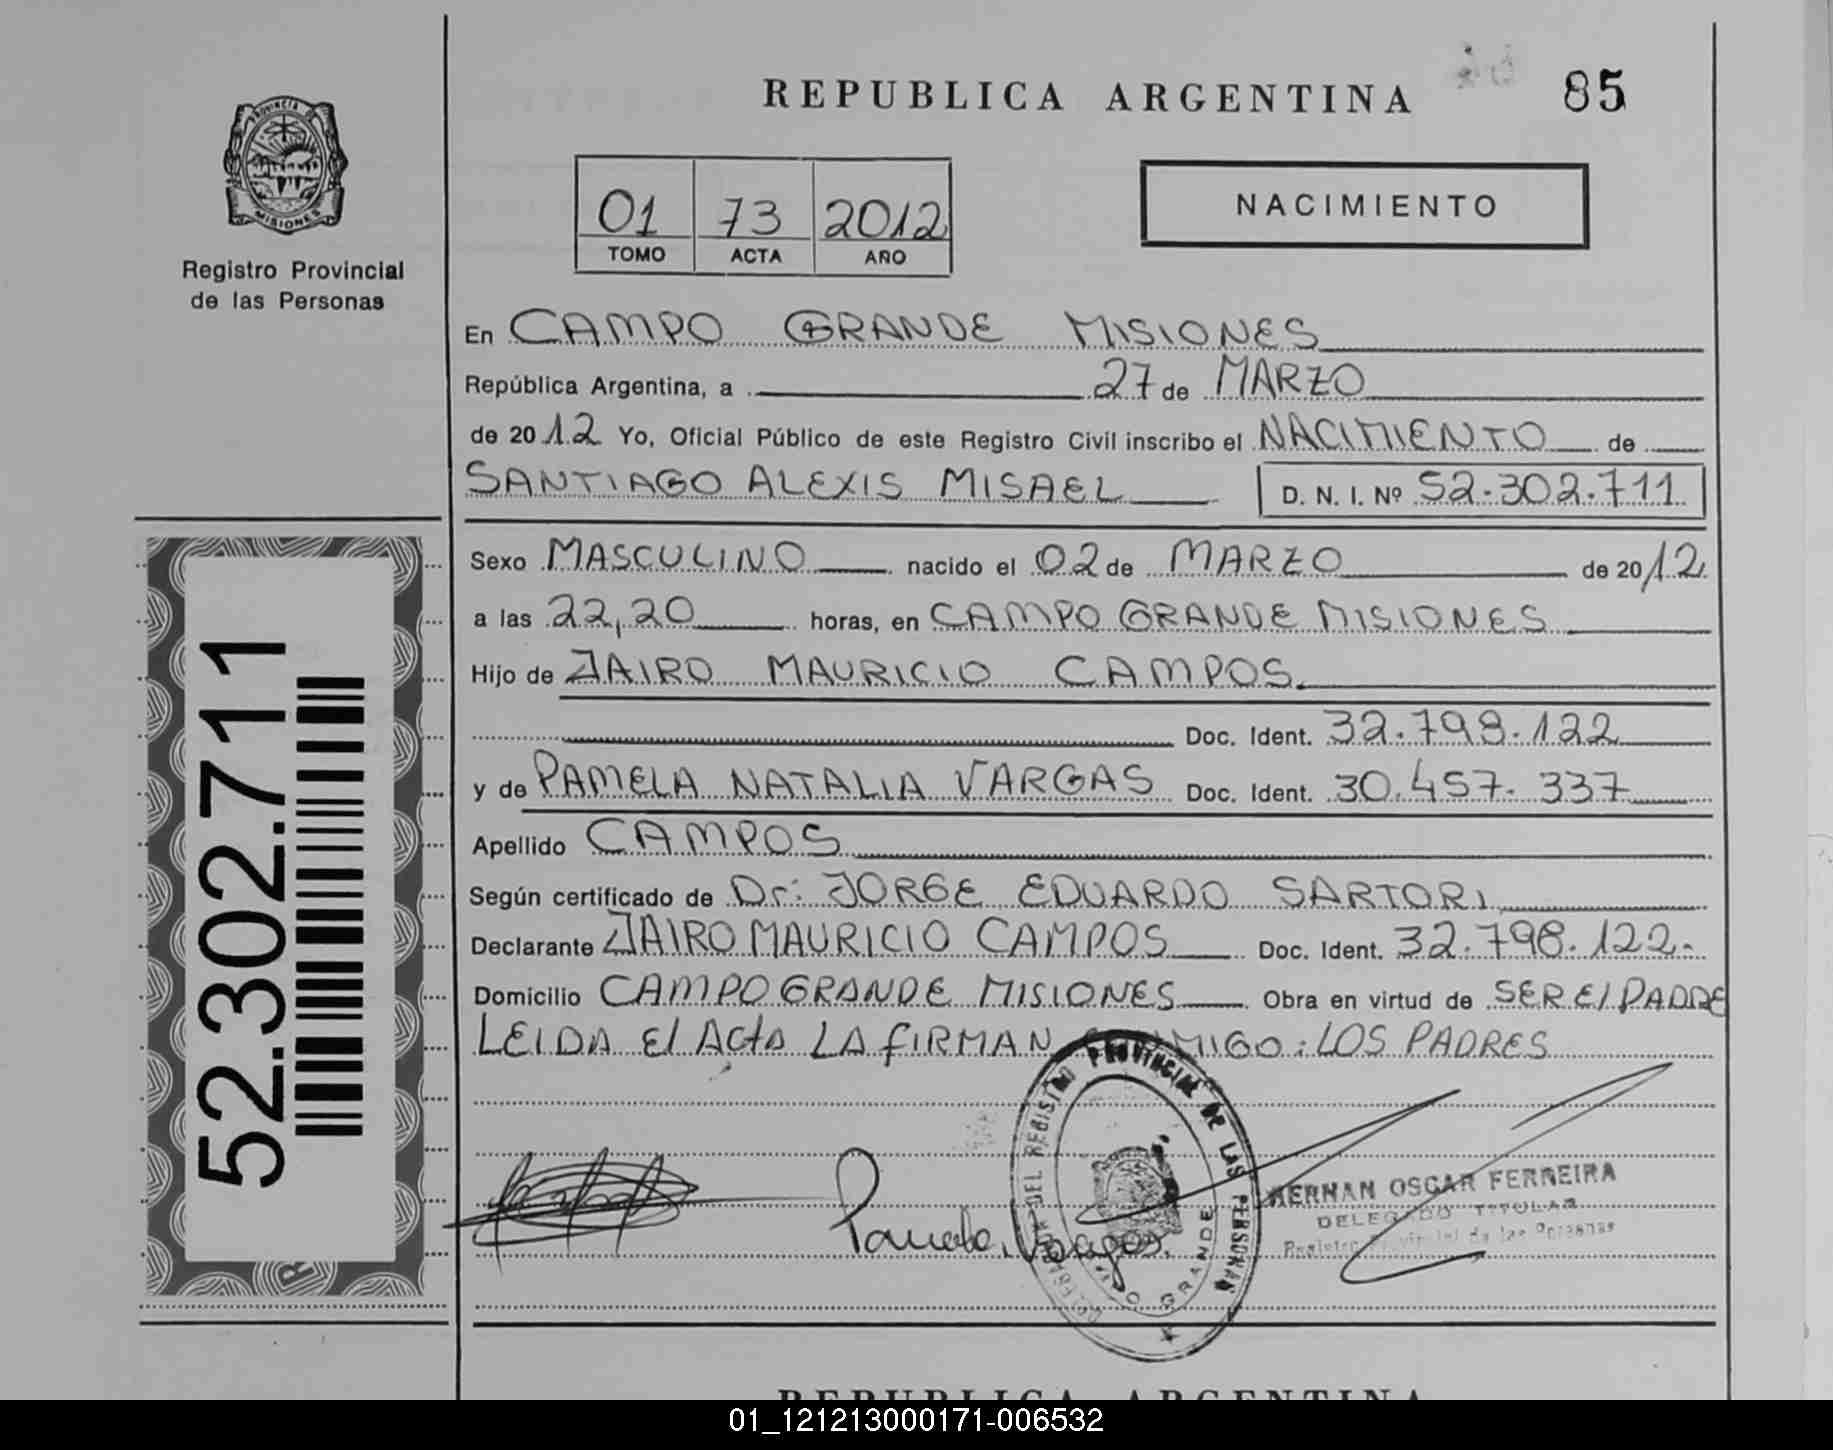 REPUBLICA ARGENTINA
85
PROVINCIA DE MISIONES
Registro Provincial
de las Personas
01 73 2012
TOMO ACTA AÑO
NACIMIENTO
En CAMPO GRANDE MISIONES
República Argentina, a 27 de MARZO
de 2012 Yo, Oficial Público de este Registro Civil inscribo el NACIMIENTO de
SANTIAGO ALEXIS MISAEL D. N. I. Nº 52.302.711
Sexo MASCULINO nacido el 02 de MARZO de 2012
a las 22,20 horas, en CAMPO GRANDE MISIONES
Hijo de JAIRO MAURICIO CAMPOS
Doc. Ident. 32.798.122
y de PAMELA NATALIA VARGAS Doc. Ident. 30.457.337
Apellido CAMPOS
Según certificado de Dr: JORGE EDUARDO SARTORI
Declarante JAIRO MAURICIO CAMPOS Doc. Ident. 32.798.122.
Domicilio CAMPO GRANDE MISIONES Obra en virtud de SER El PADRE
LEIDA El ActA LA fIRMAN MIGO: LOS PADRES
52.302.711
Pamela Vargas.
DEL REGISTRO PROVINCIAL DE LAS PERSONAS
GRANDE
HERNAN OSCAR FERREIRA
DELEGADO TITULAR
Registro Provincial de las Personas
REPUBLICA ARGENTINA
01_121213000171-006532